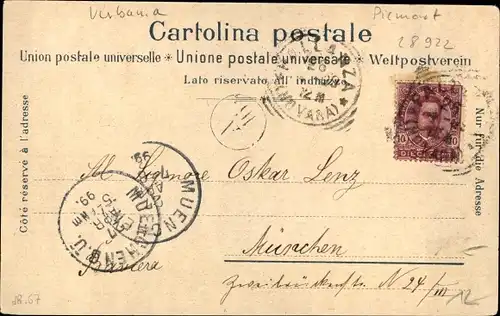 Verbania
Piemont
28922
Cartolina postale
Union postale universelle * Unione postale universale * Weltpostverein
Lato riservato all' indirizzo
PALLANZA
(NOVARA)
10
Côté réservé à l'adresse
Nur für die Adresse
Al Signore Oskar Lenz
MUENCHEN
99.
München
Baviera
Zweibrückenstr. N 24/III